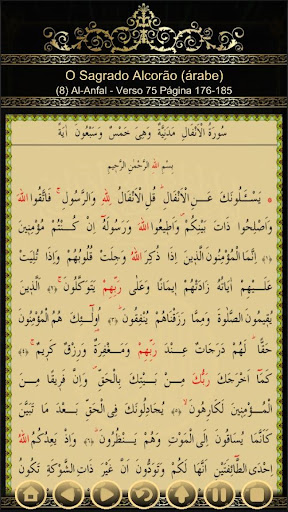 O Sagrado Alcorão (árabe)
(8) Al-Anfal - Verso 75 Página 176-185
سُورَةُ الْاَنْفَالِ مَدَنِيَّةٌ وَهِىَ خَمْسٌ وَسَبْعُونَ اٰيَةً
بِسْمِ اللهِ الرَّحْمٰنِ الرَّحِيمِ
يَسْـَٔلُونَكَ عَنِ الْاَنْفَالِۜ قُلِ الْاَنْفَالُ لِلّٰهِ وَالرَّسُولِۚ فَاتَّقُوا اللهَ
وَاَصْلِحُوا ذَاتَ بَيْنِكُمْۖ وَاَطِيعُوا اللهَ وَرَسُولَهُٓ اِنْ كُنْتُمْ مُؤْمِنِينَ
﴿١﴾ اِنَّمَا الْمُؤْمِنُونَ الَّذِينَ اِذَا ذُكِرَ اللهُ وَجِلَتْ قُلُوبُهُمْ وَاِذَا تُلِيَتْ
عَلَيْهِمْ اٰيَاتُهُ زَادَتْهُمْ اِيمَانًا وَعَلٰى رَبِّهِمْ يَتَوَكَّلُونَۚ ﴿٢﴾ اَلَّذِينَ
يُقِيمُونَ الصَّلٰوةَ وَمِمَّا رَزَقْنَاهُمْ يُنْفِقُونَۜ ﴿٣﴾ اُولٰٓئِكَ هُمُ الْمُؤْمِنُونَ
حَقًّاۜ لَهُمْ دَرَجَاتٌ عِنْدَ رَبِّهِمْ وَمَغْفِرَةٌ وَرِزْقٌ كَرِيمٌۚ ﴿٤﴾
كَمَٓا اَخْرَجَكَ رَبُّكَ مِنْ بَيْتِكَ بِالْحَقِّۖ وَاِنَّ فَرِيقًا مِنَ
الْمُؤْمِنِينَ لَكَارِهُونَۙ ﴿٥﴾ يُجَادِلُونَكَ فِى الْحَقِّ بَعْدَ مَا تَبَيَّنَ
كَاَنَّمَا يُسَاقُونَ اِلَى الْمَوْتِ وَهُمْ يَنْظُرُونَۜ ﴿٦﴾ وَاِذْ يَعِدُكُمُ اللهُ
اِحْدَى الطَّٓائِفَتَيْنِ اَنَّهَا لَكُمْ وَتَوَدُّونَ اَنَّ غَيْرَ ذَاتِ الشَّوْكَةِ تَكُونُ